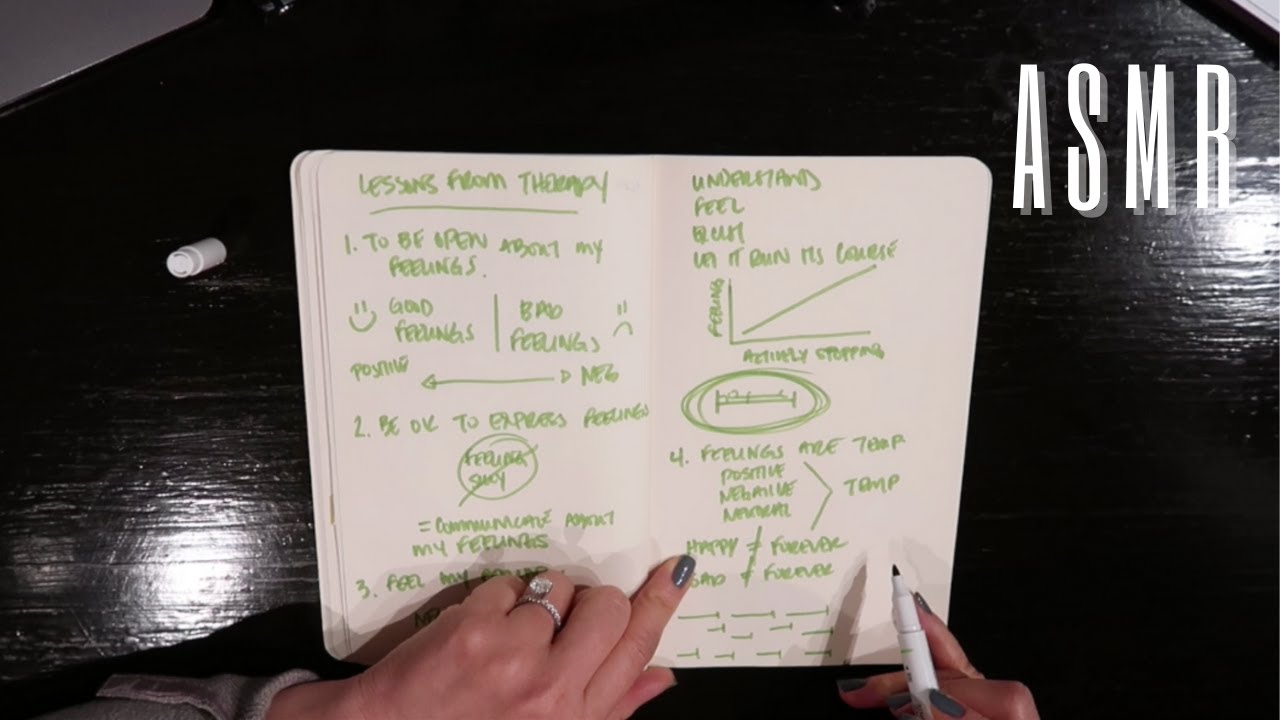 LESSONS FROM THERAPY
1. TO BE OPEN ABOUT MY
FEELINGS.
GOOD
FEELINGS
BAD
FEELINGS
POSITIVE
NEG
2. BE OK TO EXPRESS FEELINGS
FEELING
= COMMUNICATE ABOUT
MY FEELINGS
3. FEEL MY
UNDERSTAND
FEEL
LET IT RUN ITS COURSE
FEELINGS
ACTIVELY STOPPING
4. FEELINGS ARE TEMP
POSITIVE
NEGATIVE
NEUTRAL
TEMP
HAPPY ≠ FOREVER
SAD ≠ FOREVER
ASMR